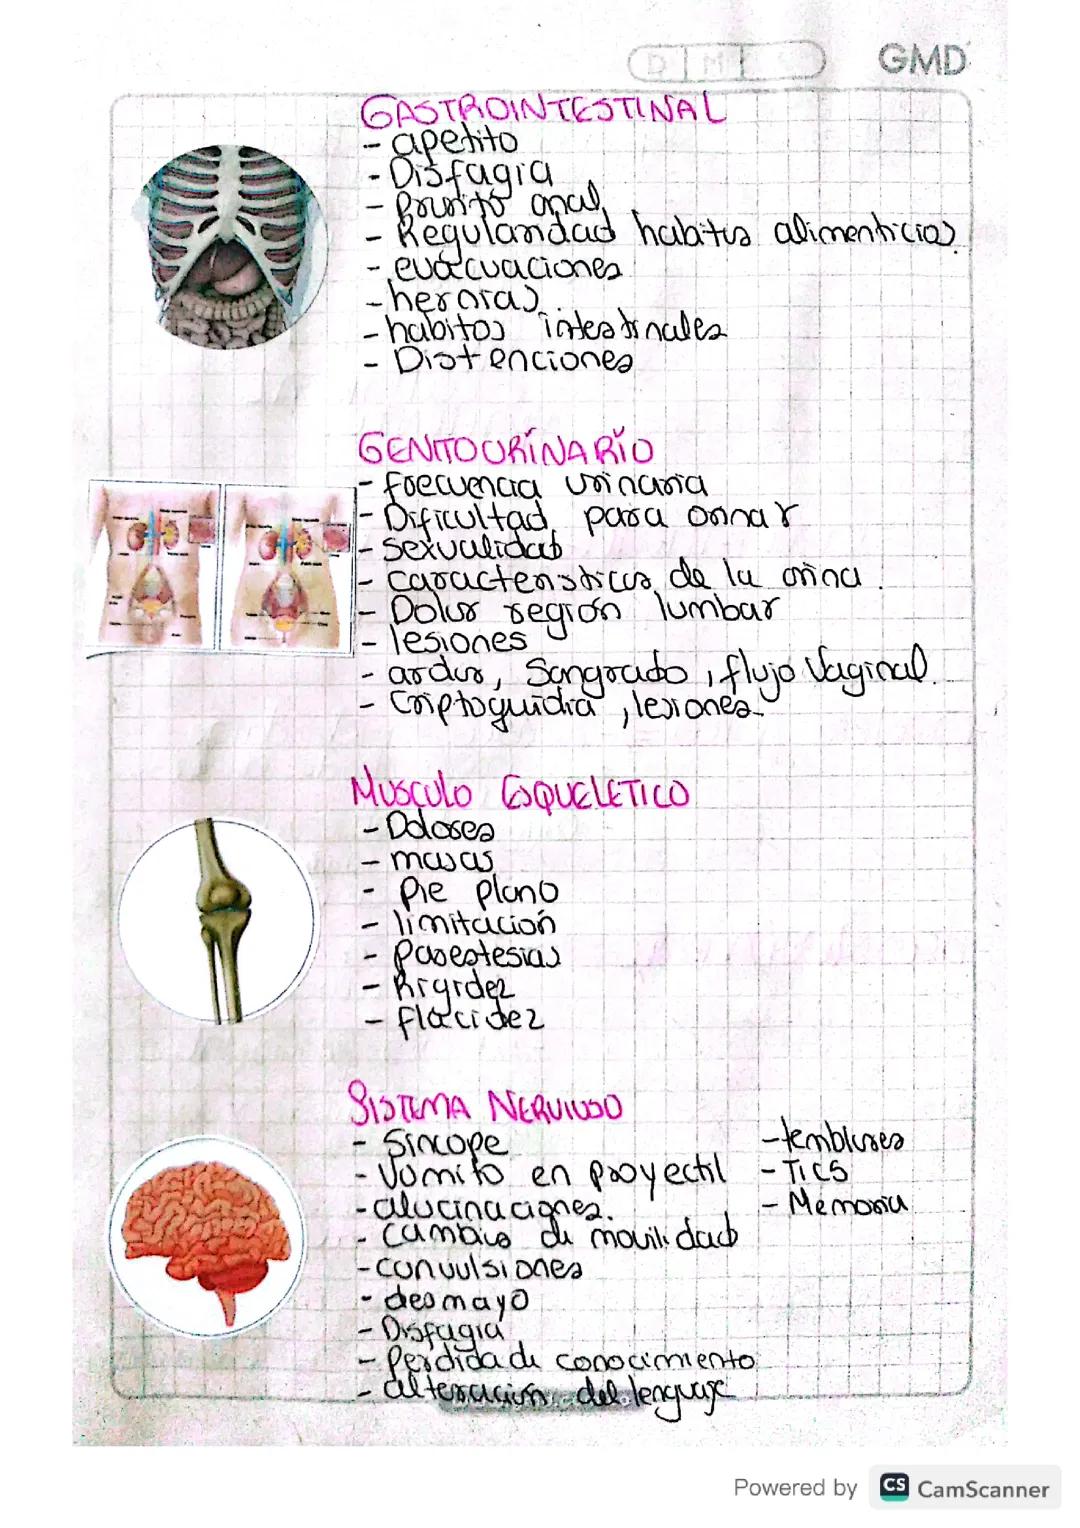 D M Y
GMD
GASTROINTESTINAL
- apetito
- Disfagia
- Prurito anal
- Regularidad habitus alimenticios
- evacuaciones
- hernias
- habitos intestinales
- Distenciones
GENITOURÍNARÍO
- frecuencia urinaria
- Dificultad para orinar
- Sexualidad
- caracteristicas de la orina
- Dolor región lumbar
- lesiones
- ardor, Sangrado, flujo Vaginal
- Criptoquidia, lesiones
MUSCULO ESQUELETICO
- Dolores
- masas
- Pie plano
- limitación
- Parestesias
- Rigidez
- flacidez
SISTEMA NERVIOSO
- Sincope
- Vomito en proyectil
- alucinaciones.
- cambio de movilidad
- convulsiones
- desmayo
- Disfagia
- Perdida de conocimiento
- alteración del lenguaje
- temblores
- Tics
- Memoria
Powered by CS CamScanner